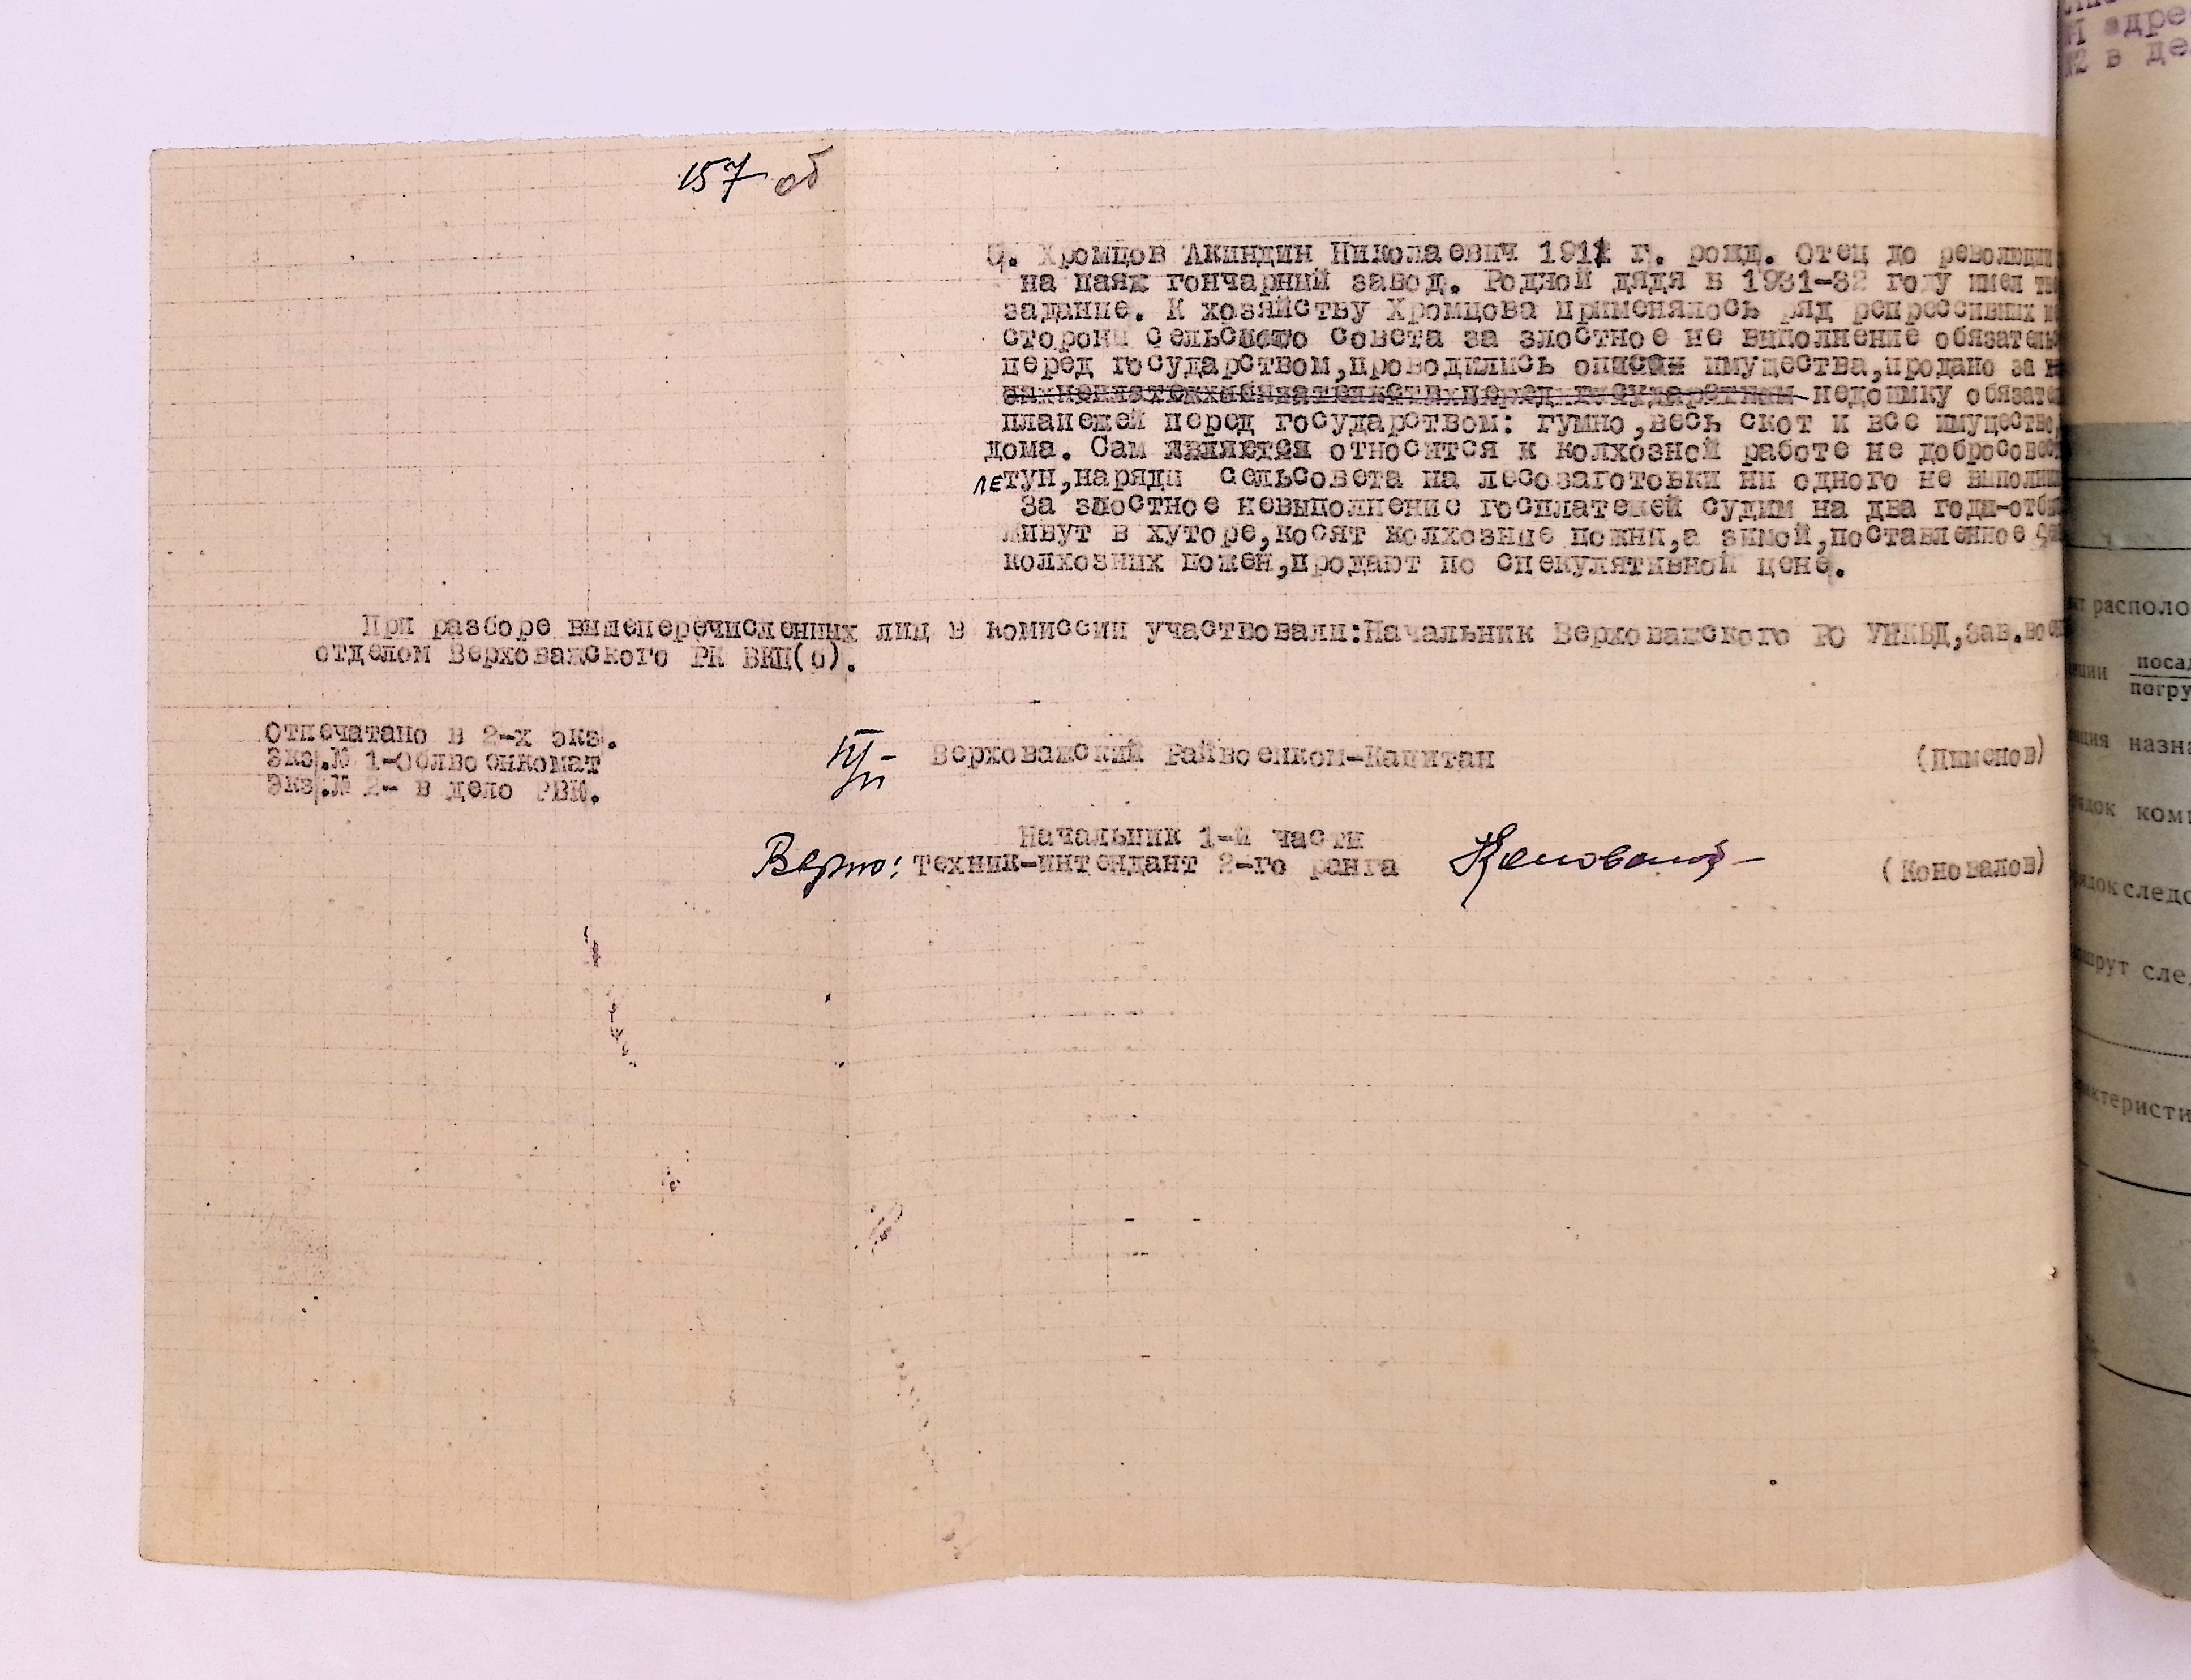 157 об
Хромцов Акиндин Николаевич г. рожд. Отец до революции
на паях гончарный завод. Родной дядя в 1931-32 году имел
задание. К хозяйству Хромцова применялось ряд репрессивных
стороны сельского совета за злостное не выполнение
перед государством,проводились описи имущества,продано за
недоимку
платежей перед государством: гумно,весь скот и все имущество,
дома. Сам относится к колхозной работе не
летун,наряды сельсовета на лесозаготовки ни одного не
За злостное невыполнение госплатежей судим на два
живут в хуторе,косят колхозные пожни,а зимой,поставленное
колхозных пожен,продают по спекулятивной цене.
При разборе вышеперечисленных лиц в комиссии участвовали:Начальник Верховажского РО УНКВД,Зав.
отделом Верховажского РК ВКП(б).
Отпечатано в 2-х экз.
Экз.№ 1-Облвоенкомат
Экз.№ 2- в дело РВК.
Верховажский Райвоенком-Капитан
Начальник 1-й части
Верно: Техник-интендант 2-го ранга Коновалов (Коновалов)
адре
в де
располо
поса
погру
назн
ком
след
сле